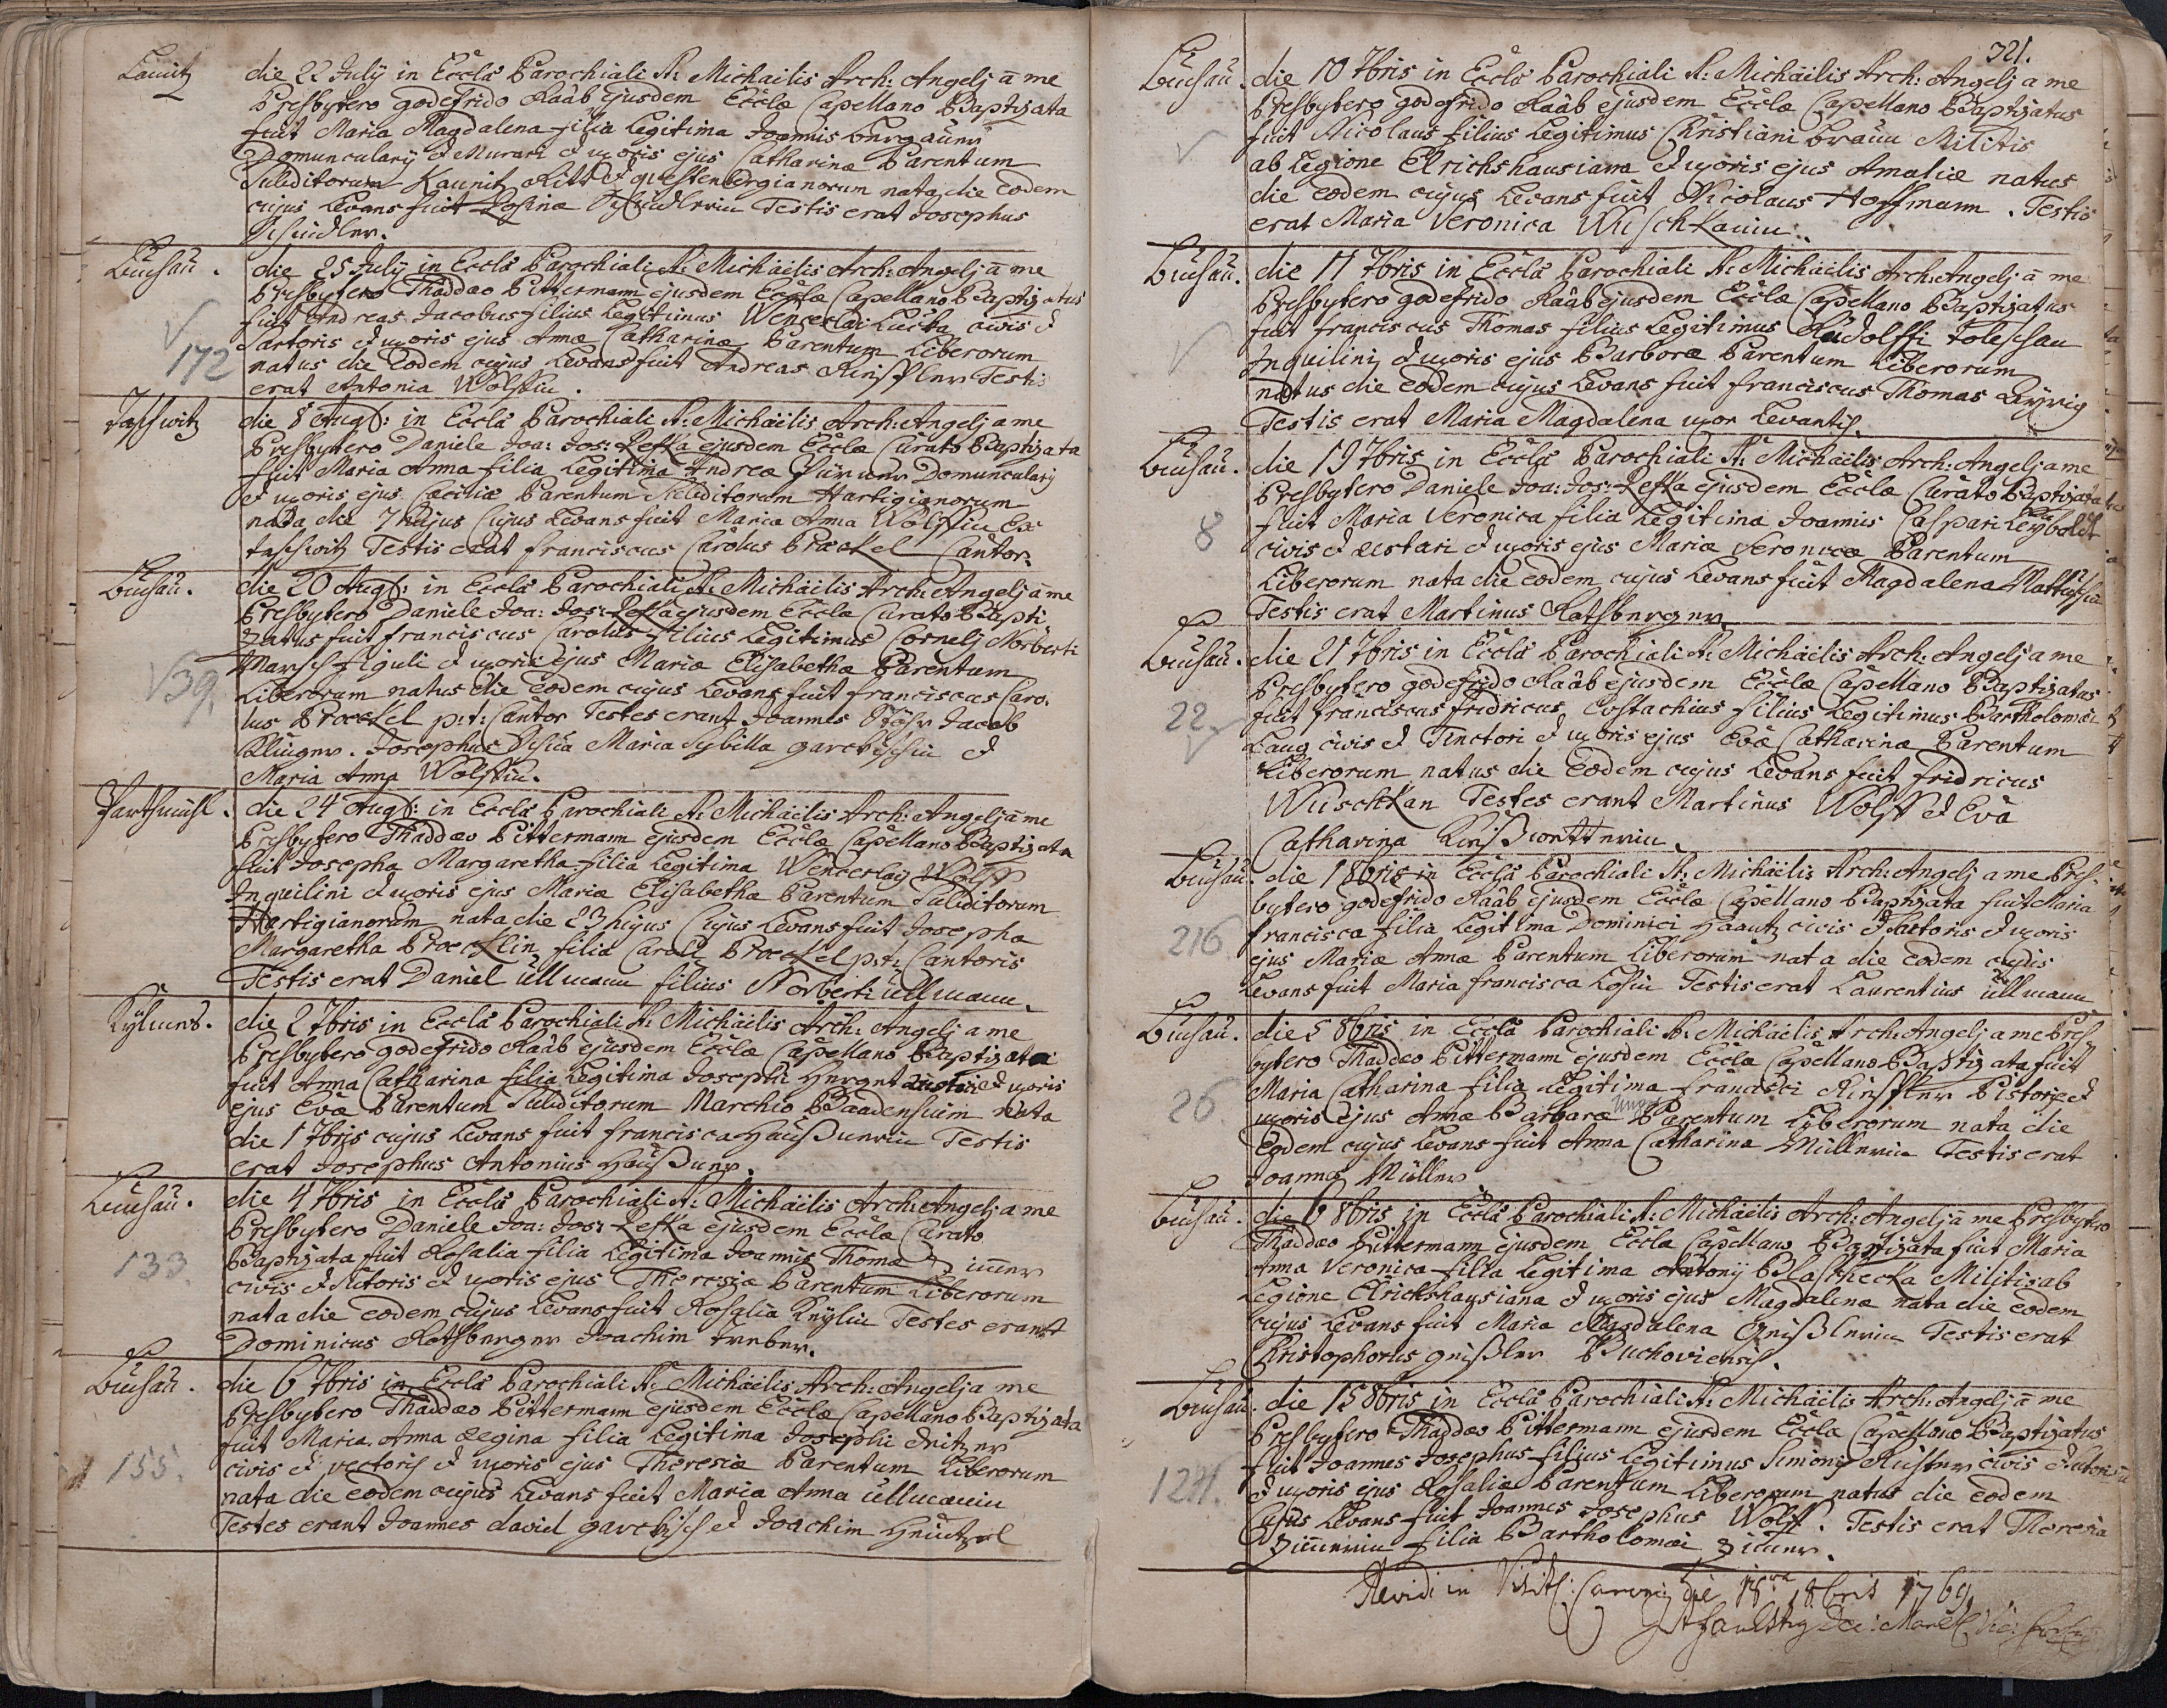 Lauitz
die 22 July in Eccla Parochiali S: Michaelis Arch: Angelj a me
Presbytero godefrido Raab ejusdem Eccla Capellano Baptizata
fuit Maria Magdalena filia Legitima Joannis
Domuncularij et Murari et uxoris ejus Catharinæ Parentum
Subditorum Kaunitz Ritt et questenbergianorum nata die eodem
cujus Levans fuit Rosina Testis erat Josephus
Buchau.
die 25 July in Eccla Parochiali S: Michaelis Arch: Angelj a me
Presbytero Thaddæo Pittermann ejusdem Eccla Capellano Baptizatus
fuit Andreas Jacobus filius Legitimus Wenceslai Lucka civis et
Sartoris et uxoris ejus Annæ Catharinæ Parentum Liberorum
172
natus die eodem cujus Levans fuit Andreas Testis
erat Antonia Wolfin.
die 8 Aug: in Eccla Parochiali S: Michaelis Arch: Angelj a me
Presbytero Daniele Joa: Jos: Lefka ejusdem Eccla Curato Baptizata
fuit Maria Anna filia Legitima Andreæ Domuncularij
et uxoris ejus Cæciliæ Parentum Subditorum Hartigianorum
nata die 7 hujus Cujus Levans fuit Maria Anna Wolffin Ex
Testis erat Franciscus Carolus Prockel Cantor.
Buchau.
die 20 Aug: in Eccla Parochiali S: Michaelis Arch: Angelj a me
Presbytero Daniele Joa: Jos: Lefka ejusdem Eccla Curato Bapti-
zatus fuit Franciscus Carolus filius Legitimus Cornelj Norberti
Marsch figuli et uxoris ejus Mariæ Elisabethæ Parentum
39.
Liberorum natus die eodem cujus Levans fuit franciscus Caro-
lus Prockel p:t: Cantor Testes erant Joannes Jacob
Josephus Maria Sybilla et
Maria Anna Wolffin.
die 24 Aug: in Eccla Parochiali S: Michaelis Arch: Angelj a me
Presbytero Thaddæo Pittermann ejusdem Eccla Capellano Baptizata
fuit Josepha Margaretha filia Legitima Wenceslay Wolff
Inquilini et uxoris ejus Mariæ Elisabethæ Parentum Subditorum
Hartigianorum nata die 23 hujus Cujus Levans fuit Josepha
Margaretha Prockelin filia Caroli Prockel p:t: Cantoris
Testis erat Daniel Ullmann filius Norberti Ullmann.
die 2 7bris in Eccla Parochiali S: Michaelis Arch: Angelj a me
Presbytero godefrido Raab ejusdem Eccla Capellano Baptizata
fuit Anna Catharina filia Legitima Josephi et uxoris
ejus Evæ Parentum Subditorum Marchio Baadensium nata
die 1 7bris cujus Levans fuit francisca Testis
erat Josephus Antonius
Buchau.
die 4 7bris in Eccla Parochiali S: Michaelis Arch: Angelj a me
Presbytero Daniele Joa: Jos: Lefka ejusdem Eccla Curato
133.
Baptizata fuit Rosalia filia Legitima Joannis Thomæ
civis et Sutoris et uxoris ejus Theresiæ Parentum Liberorum
nata die eodem cujus Levans fuit Rosalia Testes erant
Dominicus Joachim
Buchau.
die 6 7bris in Eccla Parochiali S: Michaelis Arch: Angelj a me
Presbytero Thaddæo Pittermann ejusdem Eccla Capellano Baptizata
fuit Maria Anna Regina filia Legitima Josephi
155.
civis et vectoris et uxoris ejus Theresiæ Parentum Liberorum
nata die eodem cujus Levans fuit Maria Anna Ullmanin
Testes erant Joannes david et Joachim
321.
Buchau.
die 10 7bris in Eccla Parochiali S: Michaelis Arch: Angelj a me
Presbytero godefrido Raab ejusdem Eccla Capellano Baptizatus
fuit Nicolaus filius Legitimus Christiani Braun Militis
ab Legione Elrichshausiana et uxoris ejus Amaliæ natus
die eodem cujus Levans fuit Nicolaus Hoffmann. Testis
erat Maria Veronica Wuschkanin.
Buchau.
die 11 7bris in Eccla Parochiali S: Michaelis Arch: Angelj a me
Presbytero godefrido Raab ejusdem Eccla Capellano Baptizatus
fuit franciscus Thomas filius Legitimus Rudolffi
Inquilinj et uxoris ejus Barboræ Parentum Liberorum
natus die eodem cujus Levans fuit franciscus Thomas
Testis erat Maria Magdalena uxor Levantis.
Buchau.
die 19 7bris in Eccla Parochiali S: Michaelis Arch: Angelj a me
Presbytero Daniele Joa: Jos: Lefka ejusdem Eccla Curato Baptizata
8
fuit Maria Veronica filia Legitima Joannis Caspari Leyboldt
civis et et uxoris ejus Mariæ Veronicæ Parentum
Liberorum nata die eodem cujus Levans fuit Magdalena
Testis erat Martinus
Buchau.
die 21 7bris in Eccla Parochiali S: Michaelis Arch: Angelj a me
Presbytero godefrido Raab ejusdem Eccla Capellano Baptizatus
22
fuit franciscus fridricus Eustachius filius Legitimus Bartholomæi
Lang civis et Tinctori et uxoris ejus Evæ Catharinæ Parentum
Liberorum natus die eodem cujus Levans fuit fridricus
Wuschkan Testes erant Martinus Wolff et Eva
Catharina
Buchau.
die 1 8bris in Eccla Parochiali S: Michaelis Arch: Angelj a me Pres-
bytero godefrido Raab ejusdem Eccla Capellano Baptizata fuit Maria
216
francisca filia Legitima Dominici civis et Sartoris et uxoris
ejus Mariæ Annæ Parentum Liberorum nata die eodem cujus
Levans fuit Maria francisca Testis erat Laurentius Ullmann
Buchau.
die 5 8bris in Eccla Parochiali S: Michaelis Arch: Angelj a me Pres-
bytero Thaddæo Pittermann ejusdem Eccla Capellano Baptizata fuit
26.
Maria Catharina filia Legitima francisci Pistoris et
uxoris ejus Annæ Barbaræ Parentum Liberorum nata die
eodem cujus Levans fuit Anna Catharina Müllerin Testis erat
Joannes Müller
Buchau.
die 6 8bris in Eccla Parochiali S: Michaelis Arch: Angelj a me Presbytero
Thaddæo Pittermann ejusdem Eccla Capellano Baptizata fuit Maria
Anna Veronica filia Legitima Antonij Blaschecka Militis ab
Legione Elrichshausiana et uxoris ejus Magdalenæ nata die eodem
cujus Levans fuit Maria Magdalena Testis erat
Christophorus Buchoviensis.
Buchau.
die 15 8bris in Eccla Parochiali S: Michaelis Arch: Angelj a me
Presbytero Thaddæo Pittermann ejusdem Eccla Capellano Baptizatus
fuit Joannes Josephus filius Legitimus Simonis civis
et uxoris ejus Rosaliæ Parentum Liberorum natus die eodem
Cujus Levans fuit Joannes Josephus Wolff. Testis erat Theresia
filia Bartholomæi
Revidi in die 18va 8bris 1769